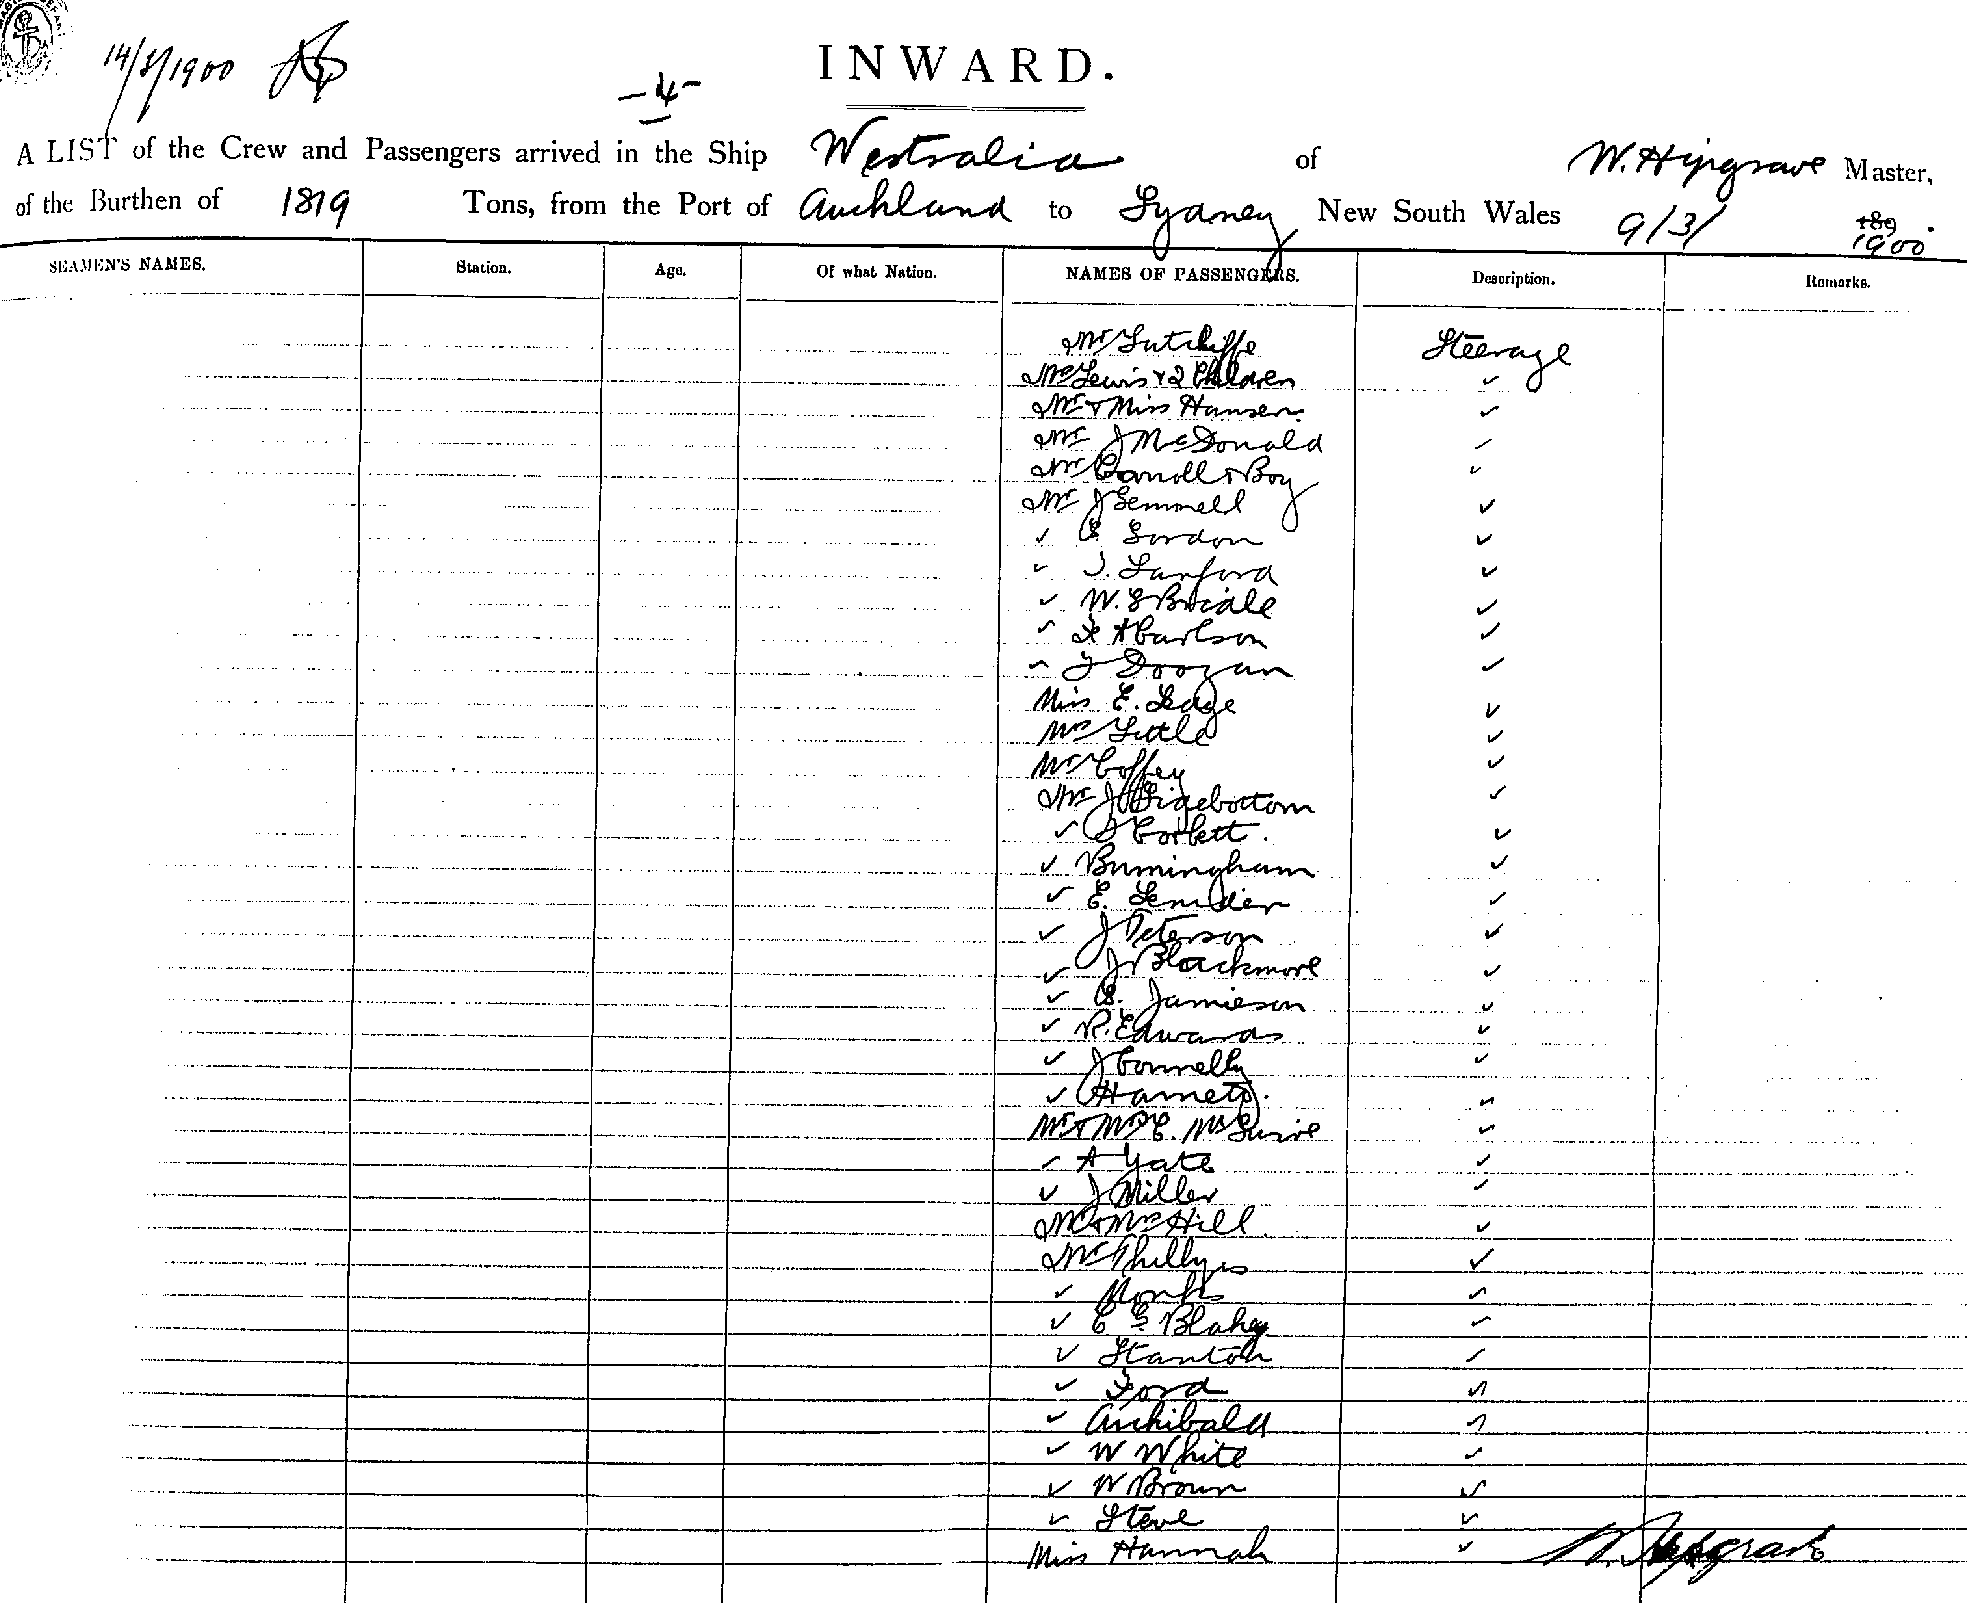 14/3/1900
- 4 -
INWARD.
A LIST of the Crew and Passengers arrived in the Ship Westralia of W. Hipgrave Master,
of the Burthen of 1819 Tons, from the Port of Auckland to Sydney New South Wales 9/3/ 189
1900
SEAMEN'S NAMES. Station. Age. Of what Nation. NAMES OF PASSENGERS. Description. Remarks.
Mr Sutcliffe Steerage
Mrs Lewis & 2 Children ✓
Mr & Miss Hansen ✓
Mr J McDonald ✓
Mr Carroll & Boy ✓
Mr J Gemmell ✓
✓ C. Gordon ✓
✓ Sanford ✓
✓ W. Bridle ✓
✓ A Carlson ✓
✓ Doogan ✓
Miss E. Ledge ✓
Mrs Little ✓
Mr Coffey ✓
Mr J Sidebottom ✓
✓ Corbett. ✓
✓ Burmingham ✓
✓ E. ✓
✓ J Peterson ✓
✓ J Blackmore ✓
✓ C. Jamieson ✓
✓ R. Edwards ✓
✓ J Connelly ✓
✓ ✓
Mr & Mrs C. McGuire ✓
✓ A Yate ✓
✓ J Miller ✓
Mr & Mrs Hill ✓
Mr Phillips ✓
✓ Monks ✓
✓ E G Blakey ✓
✓ Stanton ✓
✓ Ford ✓
✓ Archibald ✓
✓ W White ✓
✓ W Brown ✓
✓ Steve ✓
Miss Hannah ✓ W. Hipgrave